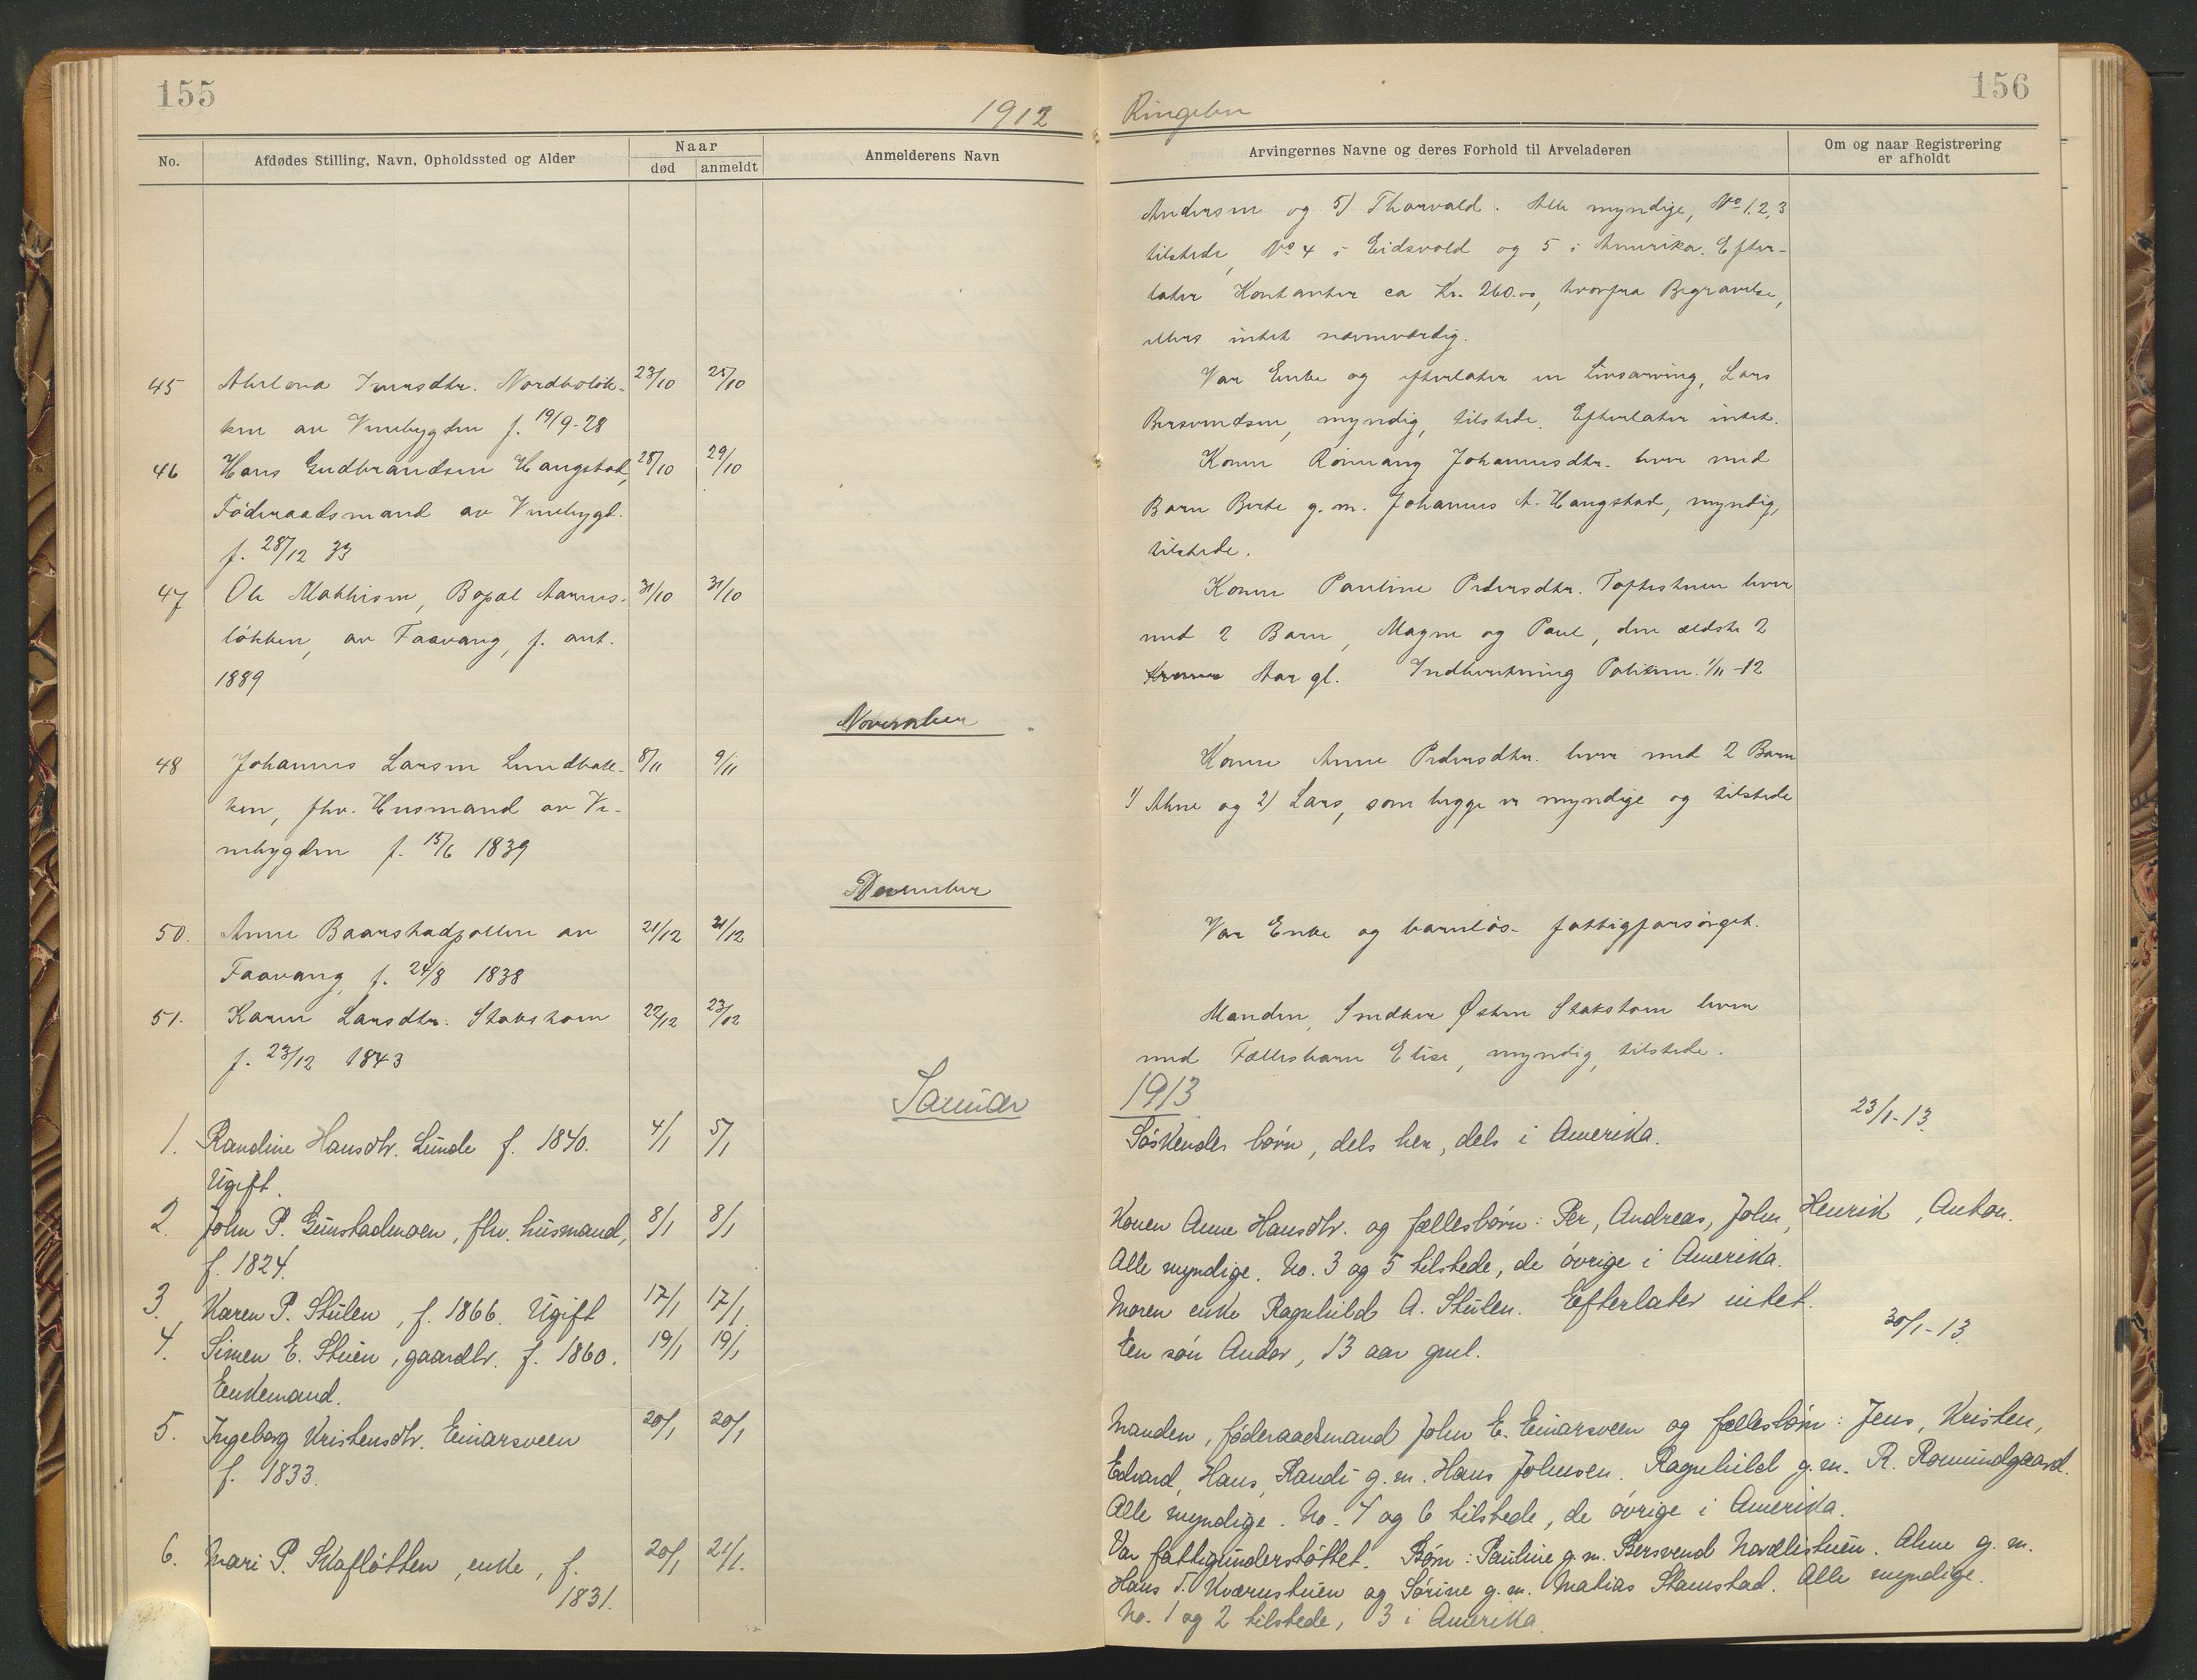 155
1912
No.
Afdødes Stilling, Navn, Opholdssted og Alder
Naar
død
anmeldt
Anmelderens Navn
45 Iversdtr. Nordboløk- 23/10 25/10
ken av Venebygden f. 19/9-28
46 Hans Gudbrandsen Haugstad, 28/10 29/10
Føderaadsmand av Venebygd.
f. 28/12 33
47 Ole Mathisen, Bopæl Aarnes- 31/10 31/10
løkken, av Faavang, f. ant.
1889
November
48 Johannes Larsen Lundbak- 8/11 9/11
ken, fhv. Husmand av Ve-
nebygden f. 15/6 1839
December
50. Anne Baarstadpollen av 21/12 21/12
Faavang, f. 24/8 1838
51. Karen Larsdtr. Stakston 22/12 23/12
f. 23/12 1843
Januar
1. Randine Hansdtr. Lunde f. 1840. 4/1 5/1
Ugift.
2. John P. Gunstadmoen, fhv. husmand, 8/1 8/1
f. 1824.
3. Karen P. Stulen, f. 1866. Ugift 17/1 17/1
4. Simen E. Stuen, gaardbr. f. 1860. 19/1 19/1
Enkemand.
5. Ingeborg Kristensdtr. Einarsveen 20/1 20/1
f. 1833.
6. Mari P. Skafløtten, enke, f. 20/1 21/1.
1831.
156
Ringebu
Arvingernes Navne og deres Forhold til Arveladeren
Om og naar Registrering
er afholdt
Andersen og 5) Thorvald. Alle myndige, No 1, 2, 3
tilstede, No 4 i Eidsvold og 5 i Amerika. Efter-
later Kontanter ca Kr. 260.00, hvorfra Begravelse,
ellers intet nævneværdig.
Var Enke og efterlater en Livsarving, Lars
Bersvendsen, myndig, tilstede. Efterlater intet.
Konen Rønnaug Johannesdtr. lever med
Barn Berte g. m. Johannes A. Haugstad, myndig,
tilstede.
Konen Pauline Pedersdtr. Toftestuen lever
med 2 Barn, Magne og Paul, den ældste 2
Aar gl. Indberetning Politiem. 1/11-12
Konen Anne Pedersdtr. lever med 2 Barn
1) Ahne og 2) Lars, som begge er myndige og tilstede
Var Enke og barnløs- fattigforsørget.
Manden, Snedker Østen Stakston lever
med Fællesbarn Elise, myndig, tilstede.
1913
23/1-13.
Søskendes børn, dels her, dels i Amerika.
Konen Anne Hansdtr. og fællesbørn: Per, Andreas, John, Henrik, Anton.
Alle myndige. No. 3 og 5 tilstede, de øvrige i Amerika.
Moren enke Ragnhild A. Stulen. Efterlater intet.
30/1-13.
Een søn Andor, 13 aar gml.
Manden, føderaadsmand John E. Einarsveen og fællesbørn: Jens, Kristen,
Edvard, Hans, Randi g. m. Hans Johnsen. Ragnhild g. m. R. Romundgaard.
Alle myndige. No. 4 og 6 tilstede, de øvrige i Amerika.
Var fattigunderstøttet. Børn: Pauline g. m. Bersvend Nordlistuen. Ahne g. m.
Hans T. Kværnstuen og Sørine g. m. Matias Stamstad. Alle myndige.
No. 1 og 2 tilstede, 3 i Amerika.